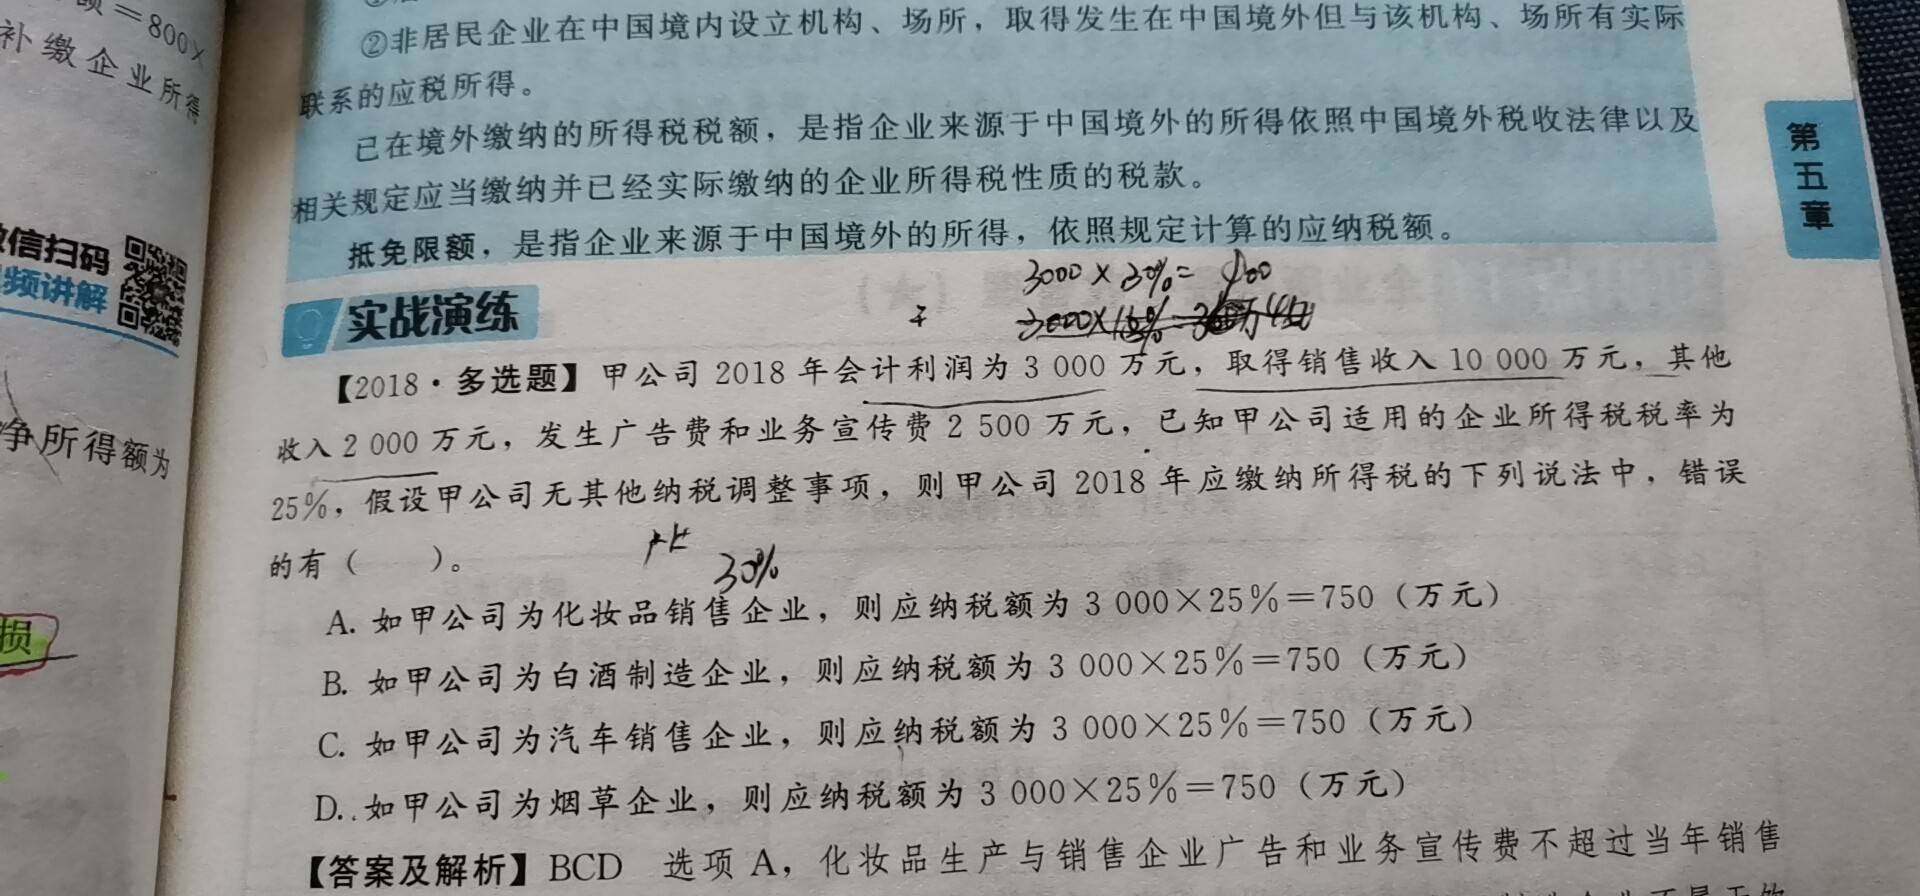 额=800×
补缴企业所得
微信扫码
频讲解
净所得额为
损
②非居民企业在中国境内设立机构、场所，取得发生在中国境外但与该机构、场所有实际
联系的应税所得。
已在境外缴纳的所得税税额，是指企业来源于中国境外的所得依照中国境外税收法律以及
相关规定应当缴纳并已经实际缴纳的企业所得税性质的税款。
抵免限额，是指企业来源于中国境外的所得，依照规定计算的应纳税额。
第五章
3000×30%=900
实战演练
【2018·多选题】甲公司 2018 年会计利润为 3 000 万元，取得销售收入 10 000 万元，其他
收入 2 000 万元，发生广告费和业务宣传费 2 500 万元，已知甲公司适用的企业所得税税率为
25%，假设甲公司无其他纳税调整事项，则甲公司 2018 年应缴纳所得税的下列说法中，错误
的有（　　）。
30%
A. 如甲公司为化妆品销售企业，则应纳税额为 3 000×25%=750（万元）
B. 如甲公司为白酒制造企业，则应纳税额为 3 000×25%=750（万元）
C. 如甲公司为汽车销售企业，则应纳税额为 3 000×25%=750（万元）
D. 如甲公司为烟草企业，则应纳税额为 3 000×25%=750（万元）
【答案及解析】BCD　选项 A，化妆品生产与销售企业广告和业务宣传费不超过当年销售